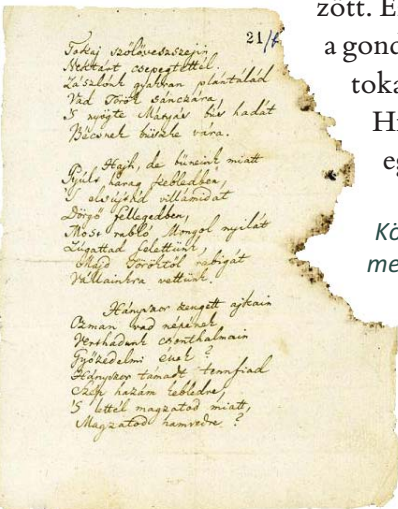 21/
Tokaj szőlővesszejin
Nektárt csepegtettél.
Zászlónk gyakran plántálád
Vad Török sánczára,
'S nyögte Mátyás bús hadát
Bécsnek büszke vára.
Hajh, de bűneink miatt
Gyúlt harag kebledben,
'S elsújtád villámidat
Dörgő fellegedben,
Most rabló Mongol nyilát
Zúgattad felettünk,
Majd Töröktől rabigát
Vállainkra vettünk.
Hányszor zengett ajkain
Ozman vad népének
Vert hadunk csonthalmain
Győzedelmi ének?
Hányszor támadt tennfiad
Szép hazám kebledre,
'S lettél magzatod miatt,
Magzatod hamvedre?
zött. E
a gond
toka
Hi
eg
Kö
me